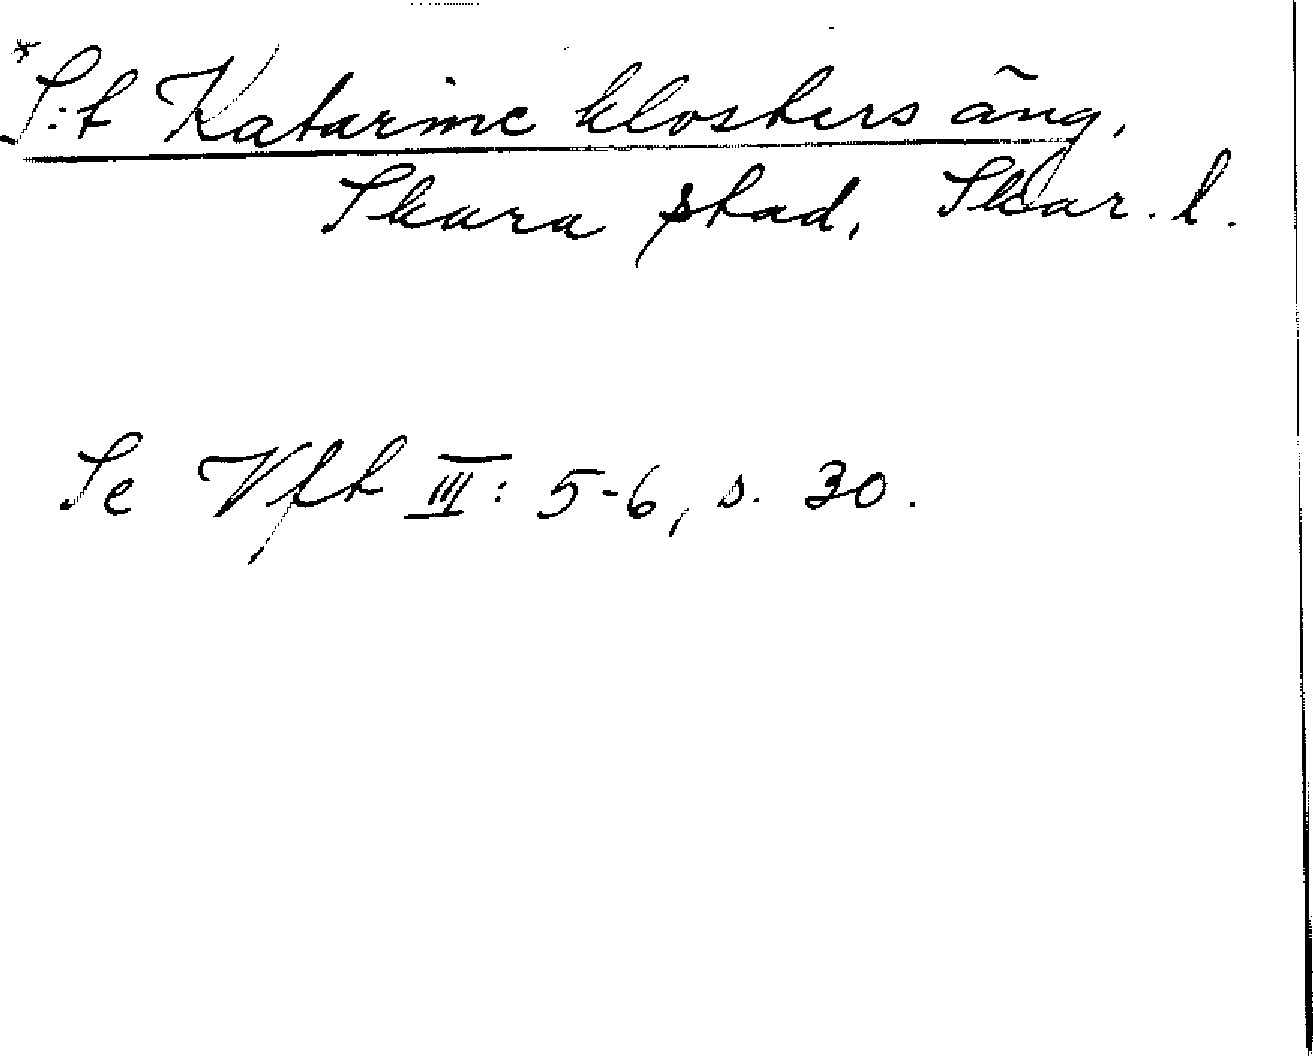 *S:t Katarine klosters äng,
Skara stad, Skar. l.
Se Vfh III: 5-6, s. 30.